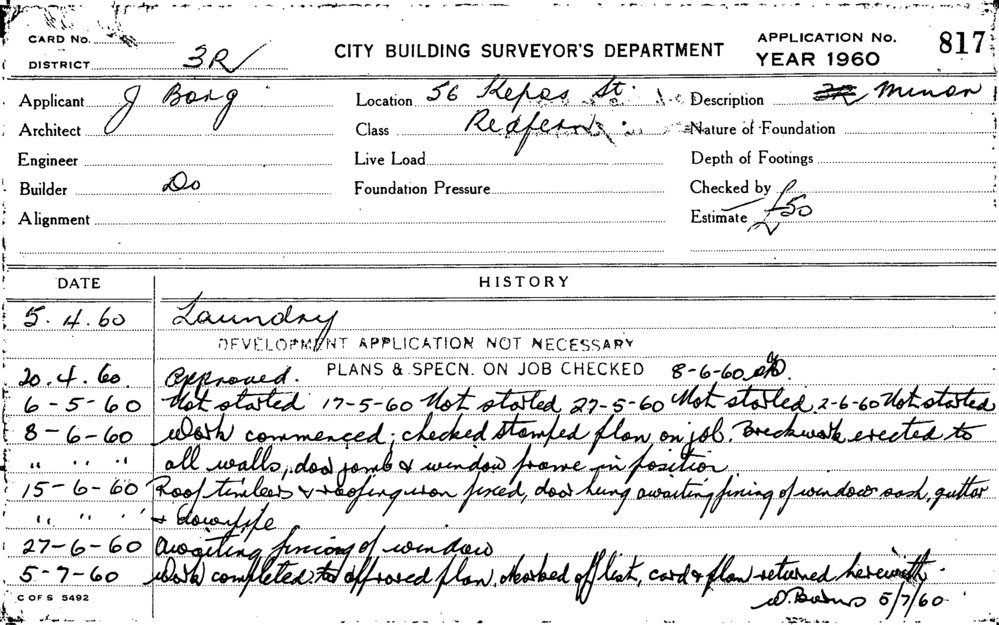 CARD No.
DISTRICT 3R
CITY BUILDING SURVEYOR'S DEPARTMENT
APPLICATION No. 817
YEAR 1960
Applicant J Borg
Location 56 Kepos St.
Description Minor
Architect
Class Redfern
Nature of Foundation
Engineer
Live Load
Depth of Footings
Builder Do
Foundation Pressure
Checked by
Alignment
Estimate £50
DATE HISTORY
5.4.60 Laundry
DEVELOPMENT APPLICATION NOT NECESSARY
20.4.60. Approved. PLANS & SPECN. ON JOB CHECKED 8-6-60
6-5-60 Not started 17-5-60 Not started, 27-5-60 Not started, 2-6-60 Not started
8-6-60 Work commenced; checked stamped plan, on job. Brickwork erected to
" " " all walls, door jamb & window frame in position
15-6-60 Roof timbers & roofing iron fixed, door hung awaiting fixing of window sash, gutter
" " " & downpipe
27-6-60 Awaiting fixing of window
5-7-60 Work completed to approved plan. Marked off list, card & plan returned herewith.
C OF S 5492
5/7/60